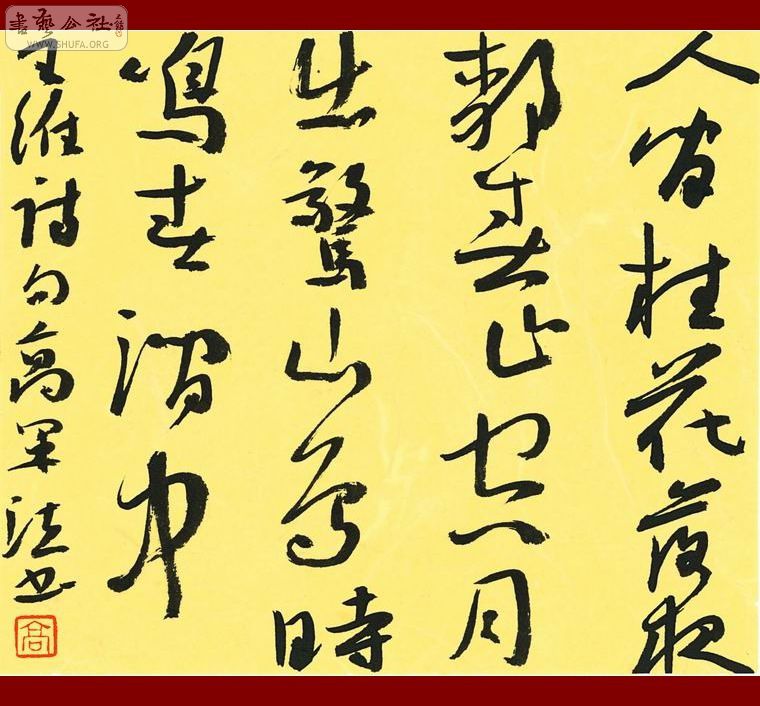 書藝公社
WWW.SHUFA.ORG
人閒桂花落夜
靜春山空月
出驚山鳥時
鳴春澗中
王維詩句高法書
高